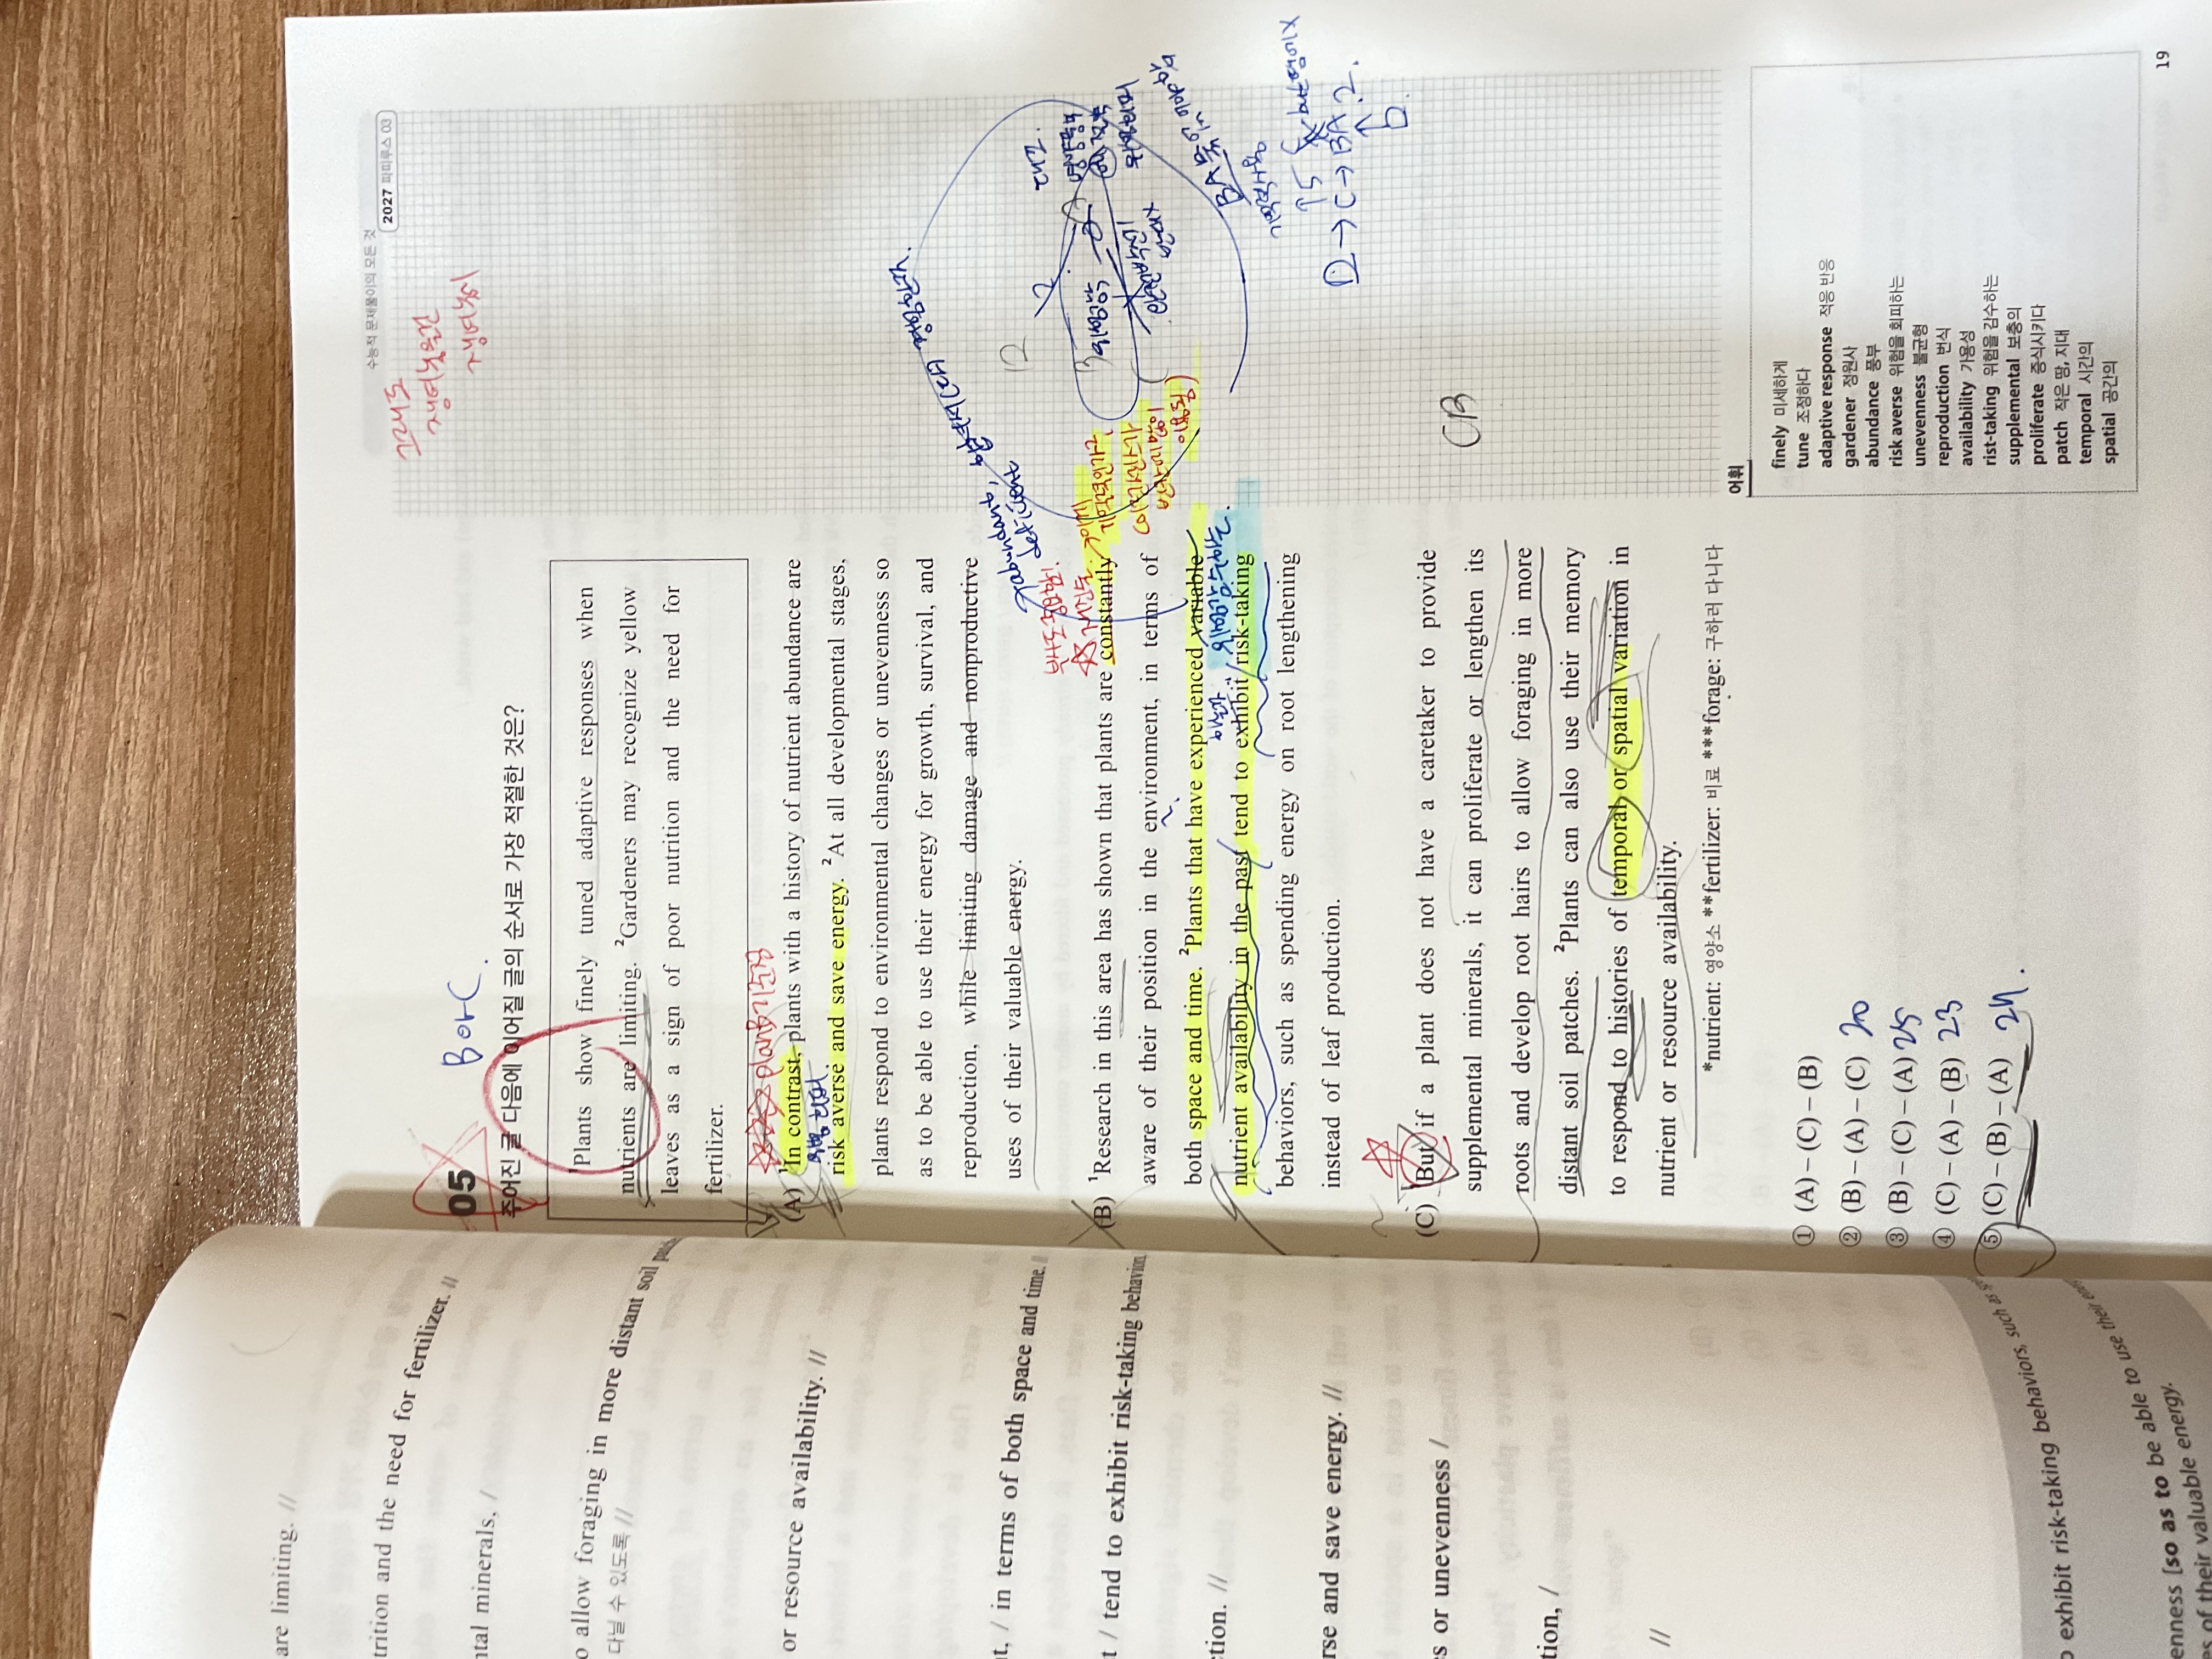 수능적 문제풀이의 모든 것
2027 파피루스 03
05
B or C.
주어진 글 다음에 이어질 글의 순서로 가장 적절한 것은?
¹Plants show finely tuned adaptive responses when
nutrients are limiting. ²Gardeners may recognize yellow
leaves as a sign of poor nutrition and the need for
fertilizer.
(A) ¹In contrast, plants with a history of nutrient abundance are
risk averse and save energy. ²At all developmental stages,
plants respond to environmental changes or unevenness so
as to be able to use their energy for growth, survival, and
reproduction, while limiting damage and nonproductive
uses of their valuable energy.
(B) ¹Research in this area has shown that plants are constantly
aware of their position in the environment, in terms of
both space and time. ²Plants that have experienced variable
nutrient availability in the past tend to exhibit risk-taking
behaviors, such as spending energy on root lengthening
instead of leaf production.
(C) ¹But if a plant does not have a caretaker to provide
supplemental minerals, it can proliferate or lengthen its
roots and develop root hairs to allow foraging in more
distant soil patches. ²Plants can also use their memory
to respond to histories of temporal or spatial variation in
nutrient or resource availability.
*nutrient: 영양소 **fertilizer: 비료 ***forage: 구하러 다니다
① (A)-(C)-(B)
② (B)-(A)-(C) 20
③ (B)-(C)-(A) 25
④ (C)-(A)-(B) 23
⑤ (C)-(B)-(A) 24.
CB
어휘
finely 미세하게
tune 조정하다
adaptive response 적응 반응
gardener 정원사
abundance 풍부
risk averse 위험을 회피하는
unevenness 불균형
reproduction 번식
availability 가용성
rist-taking 위험을 감수하는
supplemental 보충의
proliferate 증식시키다
patch 작은 땅, 지대
temporal 시간의
spatial 공간의
19
are limiting. //
trition and the need for fertilizer. //
ntal minerals, /
o allow foraging in more distant soil
다닐 수 있도록 //
or resource availability. //
t, / in terms of both space and time. /
t / tend to exhibit risk-taking behavior
ction. //
rse and save energy. //
es or unevenness /
tion, /
//
o exhibit risk-taking behaviors, such as
enness [so as to be able to use their
s of their valuable energy.